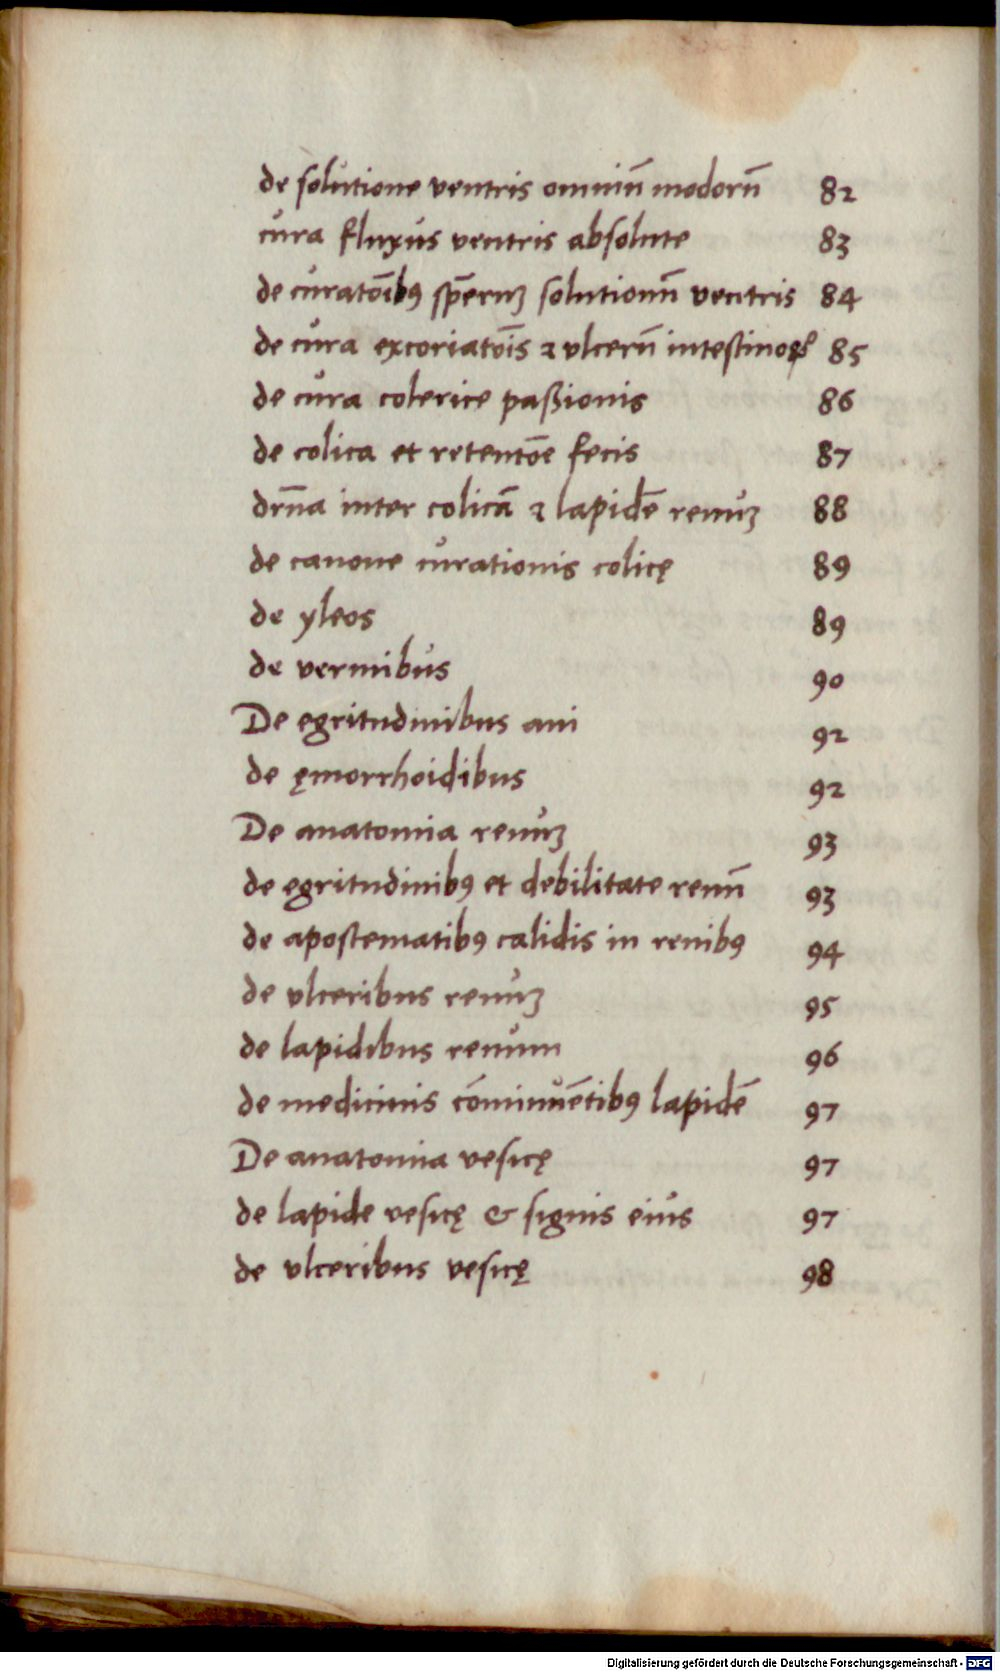 de solutione ventris omniū modorū 82
cura fluxus ventris absolute 83
de curatōībꝯ sp̄erūꝫ solutionū ventris 84
de cura excoriatōīs ⁊ vlcerū intestinoꝝ 85
de cura colerice paßionis 86
de colica et retentōe fecis 87
dr̄na inter colicā ⁊ lapidē renuꝫ 88
de canone curationis colicę 89
de yleos 89
de vermibus 90
De egritudinibus ani 92
de ęmorrhoidibus 92
De anatomia renuꝫ 93
de egritudinibꝯ et debilitate renū 93
de apostematibꝯ calidis in renibꝯ 94
de vlceribus renuꝫ 95
de lapidibus renum 96
de medicinis cōminuētibꝯ lapidē 97
De anatomia vesicę 97
de lapide vesicę & signis eius 97
de vlceribus vesicę 98
Digitalisierung gefördert durch die Deutsche Forschungsgemeinschaft - DFG